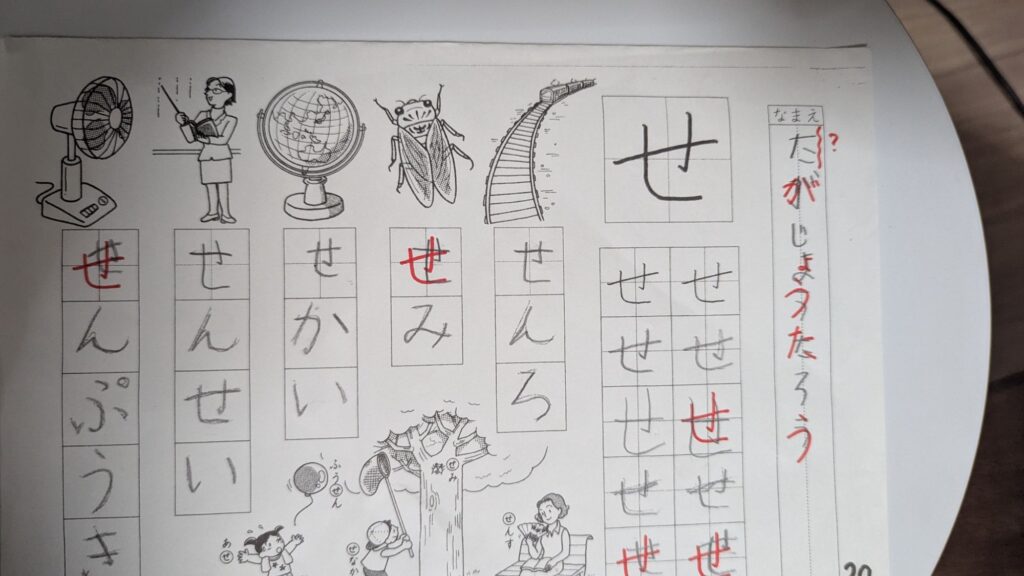 なまえ
たがじょうたろう
?
せ
せせせせせ
せせせせせ
せんろ
せみ
せかい
せんせい
せんぷうき
せみ
せんす
ふうせん
せなか
あせ